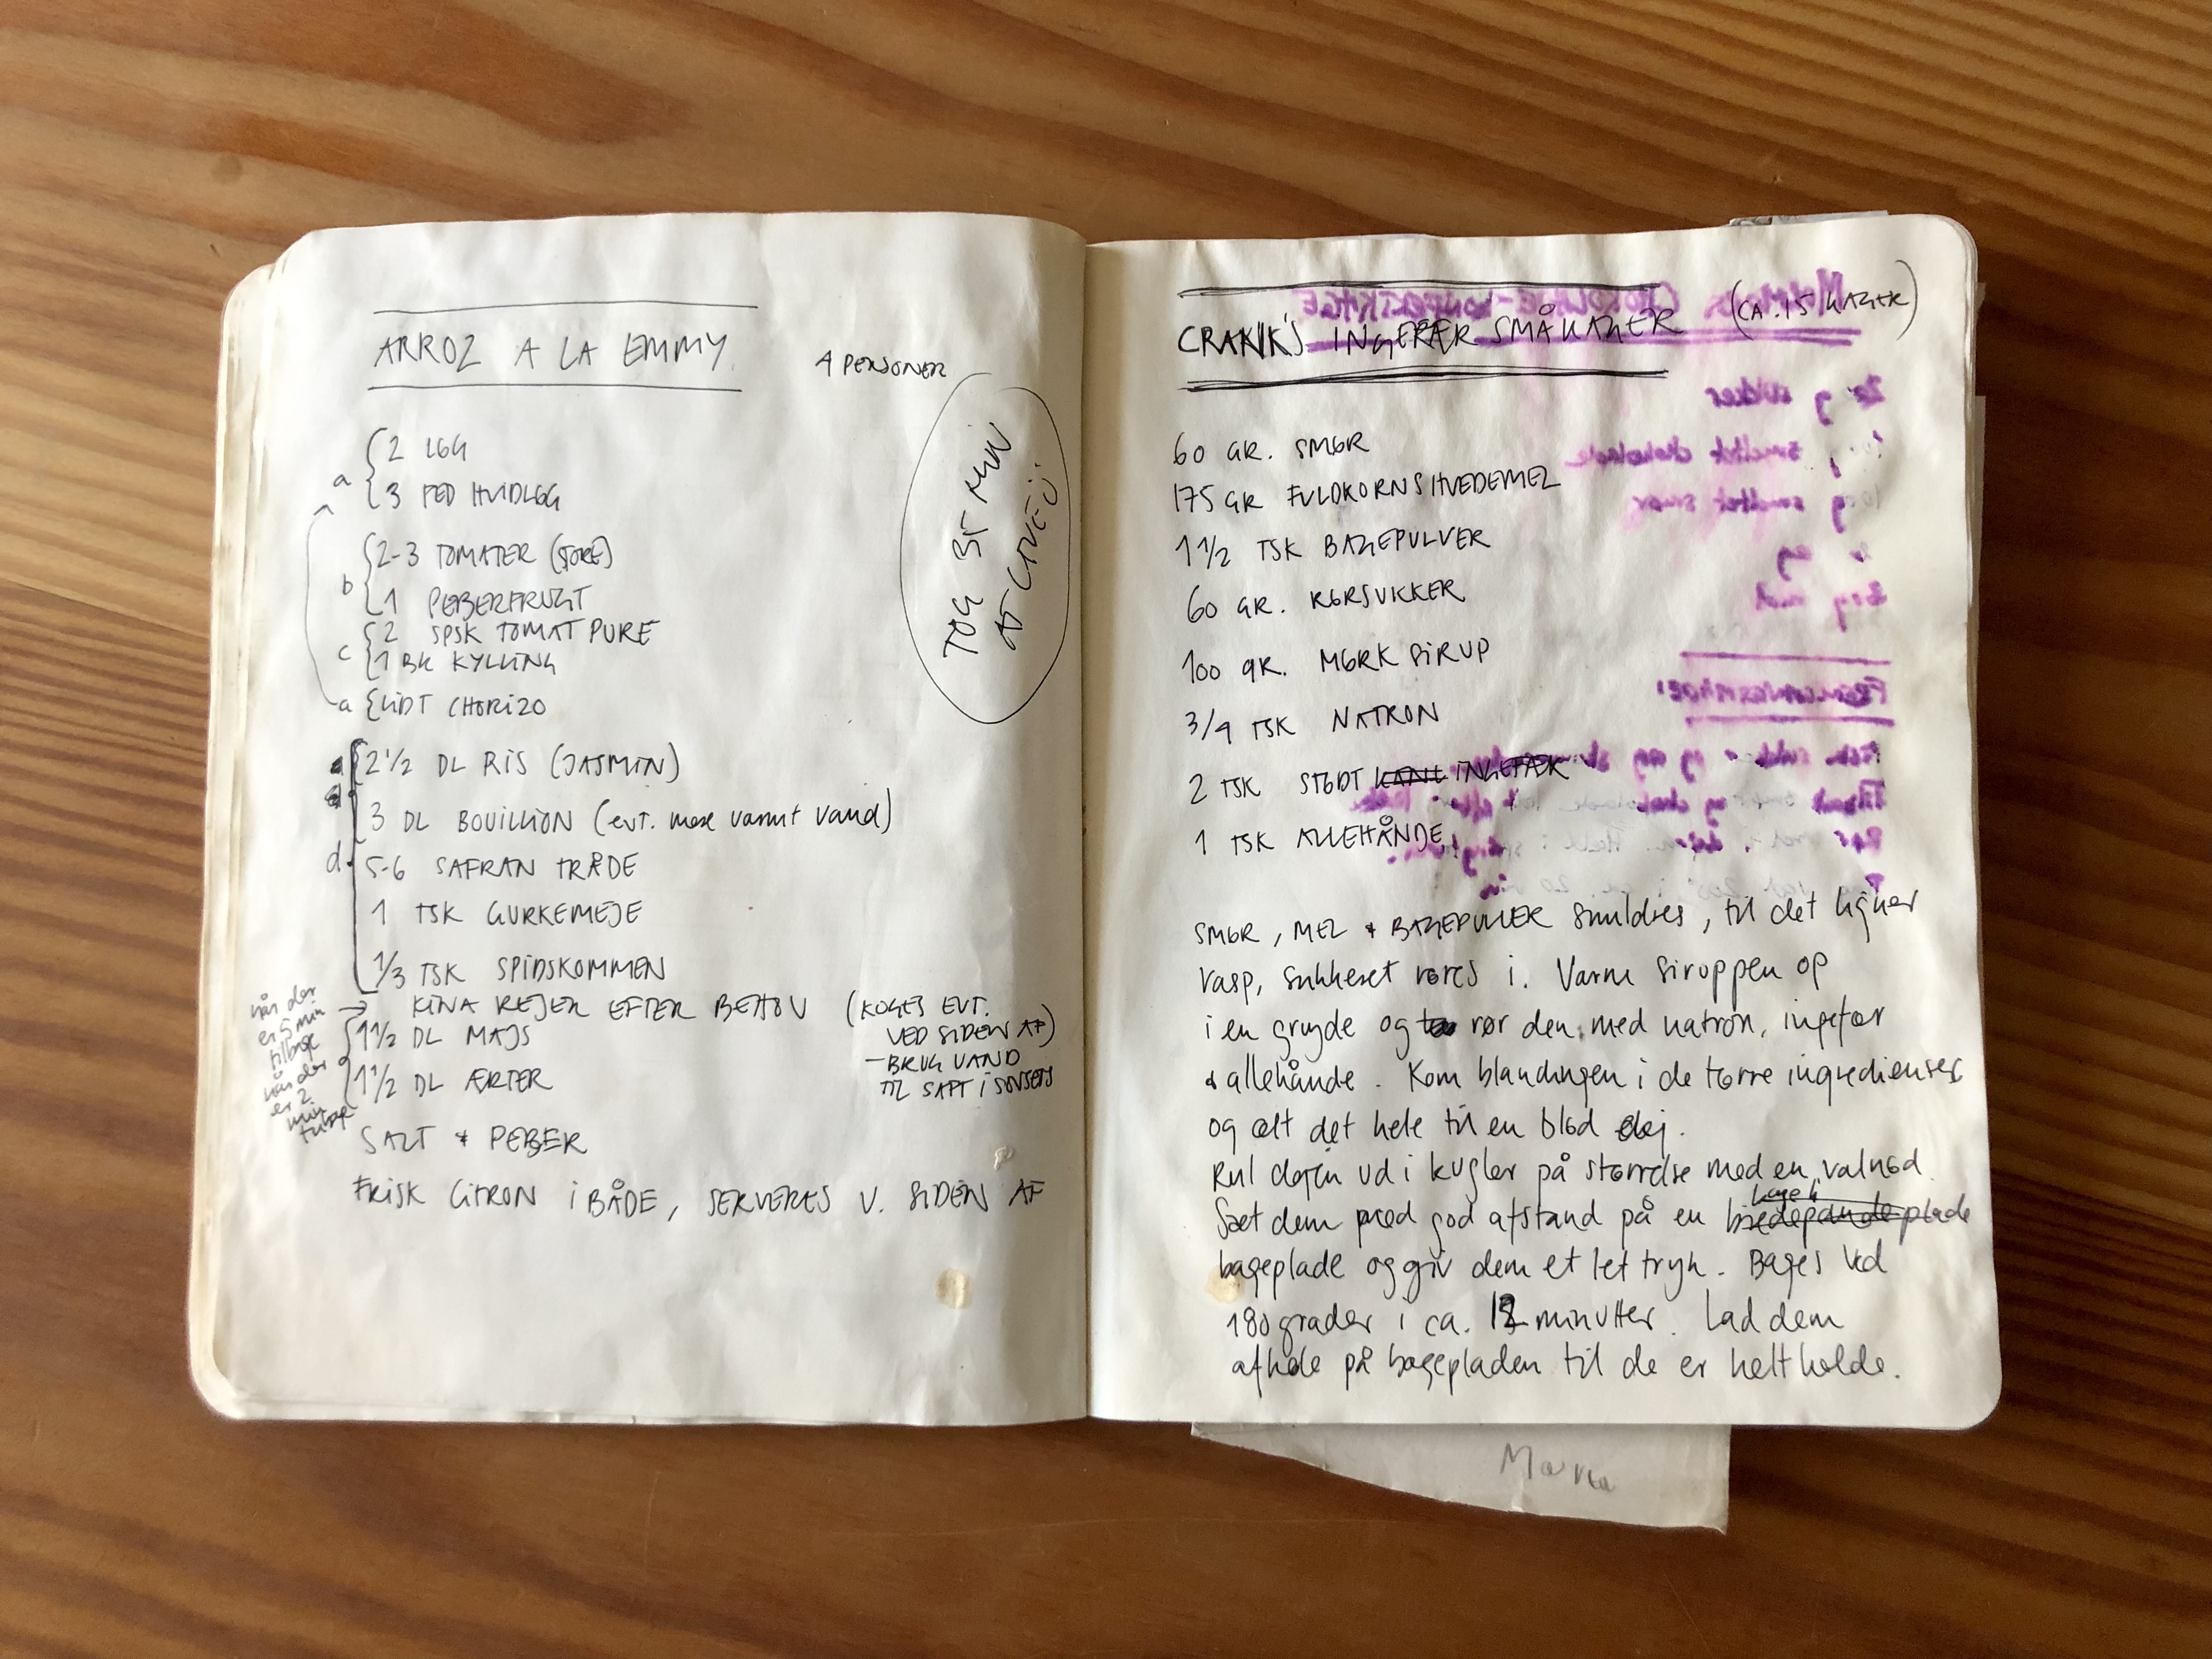 ARROZ A LA EMMY
4 PERSONER
TOG 35 MIN
AT LAVE :)
a
2 LØG
3 FED HVIDLØG
b
2-3 TOMATER (STORE)
1 PEBERFRUGT
c
2 SPSK TOMAT PURE
1 BK KYLLING
a LIDT CHORIZO
2 1/2 DL RIS (JASMIN)
3 DL BOUILLION (evt. mere varmt vand)
d
5-6 SAFRAN TRÅDE
1 TSK GURKEMEJE
1/3 TSK SPIDSKOMMEN
når der
er 5 min
tilbage
→ KINA REJER EFTER BEHOV (KOGES EVT.
VED SIDEN AF)
- BRUG VAND
TIL SAFT I SOVSEN
når der
er 2
min
tilbage
1 1/2 DL MAJS
1 1/2 DL ÆRTER
SALT & PEBER
FRISK CITRON I BÅDE, SERVERES V. SIDEN AF
CRANK'S INGEFÆR SMÅKAGER (CA. 15 KAGER)
60 GR. SMØR
175 GR FULDKORNSHVEDEMEL
1 1/2 TSK BAGEPULVER
60 GR. RØRSUKKER
100 GR. MØRK SIRUP
3/4 TSK NATRON
2 TSK STØDT KANEL INGEFÆR
1 TSK ALLEHÅNDE
SMØR, MEL & BAGEPULVER smuldres, til det ligner
rasp, sukkeret røres i. Varm siruppen op
i en gryde og rør den med natron, ingefær
& allehånde. Kom blandingen i de tørre ingredienser
og ælt det hele til en blød dej.
Rul dejen ud i kugler på størrelse med en valnød.
Sæt dem med god afstand på en bradepandeplade
bageplade og giv dem et let tryk. Bages ved
180 grader i ca. 12 minutter. Lad dem
afkøle på bagepladen til de er helt kolde.
CHOKOLADE-KONFEKTKAGE
g sukker
smeltet chokolade
g smeltet smør
æg
g mel
FREMGANGSMÅDE: